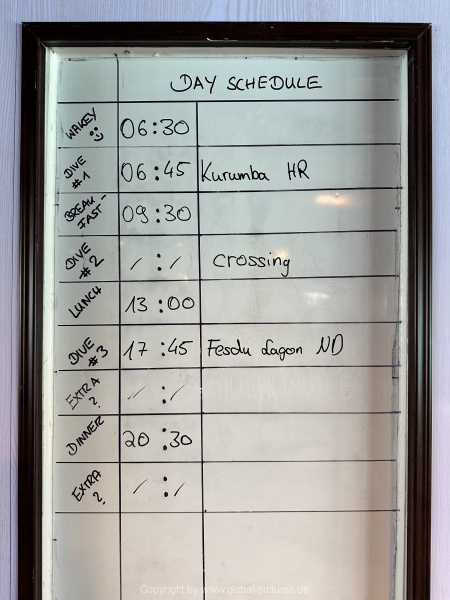 DAY SCHEDULE
WAKEY 06:30
DIVE #1 06:45 Kurumba HR
BREAK-FAST 09:30
DIVE #2 / : / crossing
LUNCH 13:00
DIVE #3 17:45 Fesdu Lagon ND
EXTRA ? / : /
DINNER 20:30
EXTRA ? / : /
Copyright by www.global-pictures.de